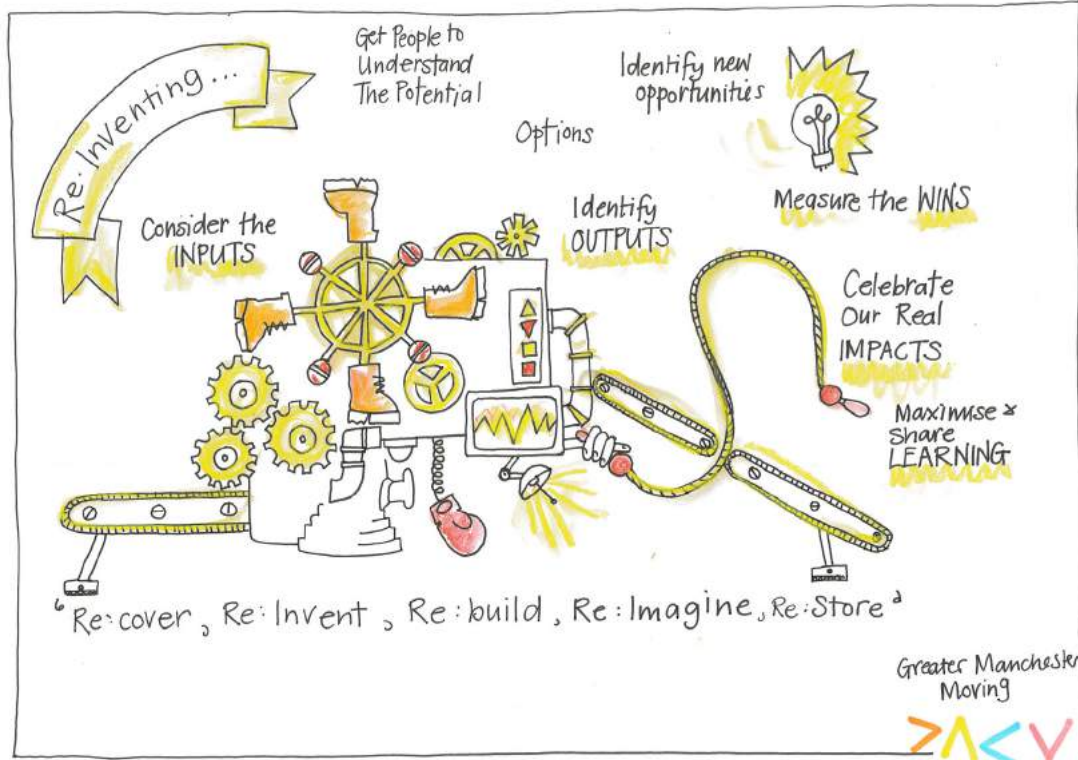 Re: Inventing...
Get People to
Understand
The Potential
Identify new
opportunities
Options
Measure the WINS
Consider the
INPUTS
Identify
OUTPUTS
Celebrate
Our Real
IMPACTS
Maximise &
Share
LEARNING
"Re:cover, Re:Invent, Re:build, Re:Imagine, Re:Store"
Greater Manchester
Moving